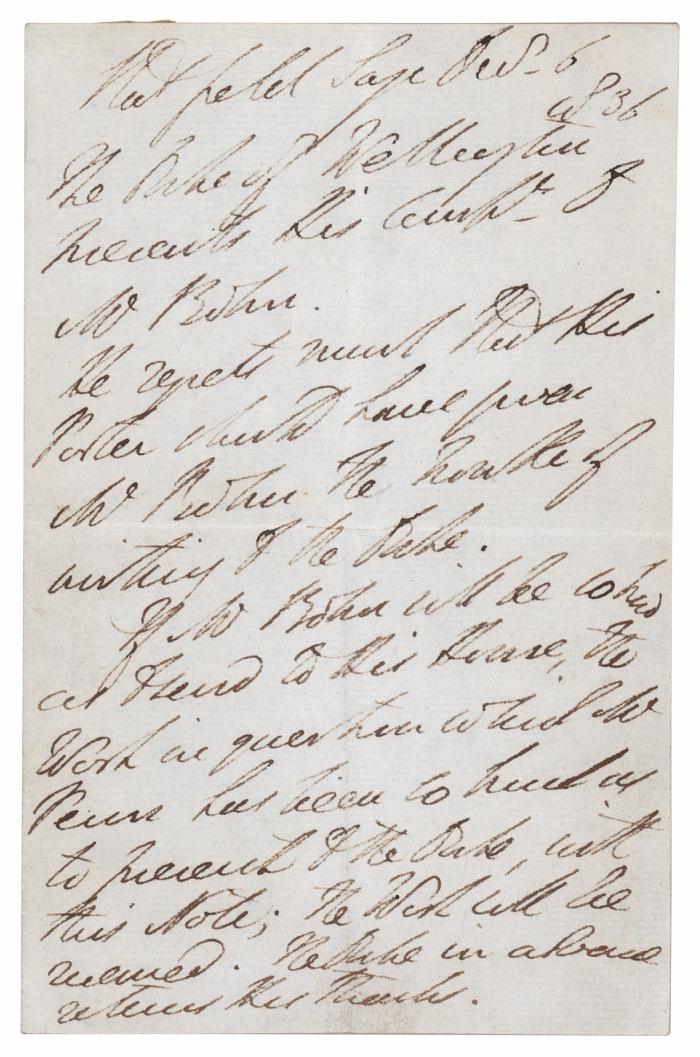 Strat field Saye Dec. 6
1836
The Duke of Wellington
presents His Compts. to
Mr Bohn.
He regrets much that His
Porter should have given
Mr Bohn the trouble of
writing to the Duke.
If Mr Bohn will be so kind
as to send to His House, the
Work in question which Mr
Penn has been so kind as
to present to the Duke, with
this Note; the Work will be
received. The Duke in advance
returns His Thanks.